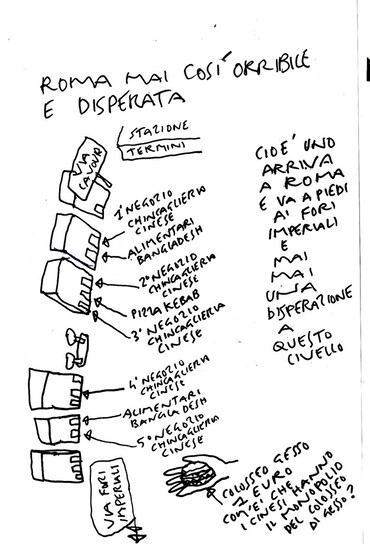 ROMA MAI COSÌ ORRIBILE
E DISPERATA
STAZIONE
TERMINI
VIA
CAVOUR
1° NEGOZIO
CHINCAGLIERIA
CINESE
ALIMENTARI
BANGLADESH
2° NEGOZIO
CHINCAGLIERIA
CINESE
PIZZA KEBAB
3° NEGOZIO
CHINCAGLIERIA
CINESE
4° NEGOZIO
CHINCAGLIERIA
CINESE
ALIMENTARI
BANGLADESH
5° NEGOZIO
CHINCAGLIERIA
CINESE
VIA FORI
IMPERIALI
CIOÈ UNO
ARRIVA
A ROMA
E VA A PIEDI
AI FORI
IMPERIALI
E
MAI
MAI
UNA
DISPERAZIONE
A
QUESTO
LIVELLO
COLOSSEO GESSO
1 EURO
COM'È CHE
I CINESI HANNO
IL MONOPOLIO
DEL COLOSSEO
DI GESSO?